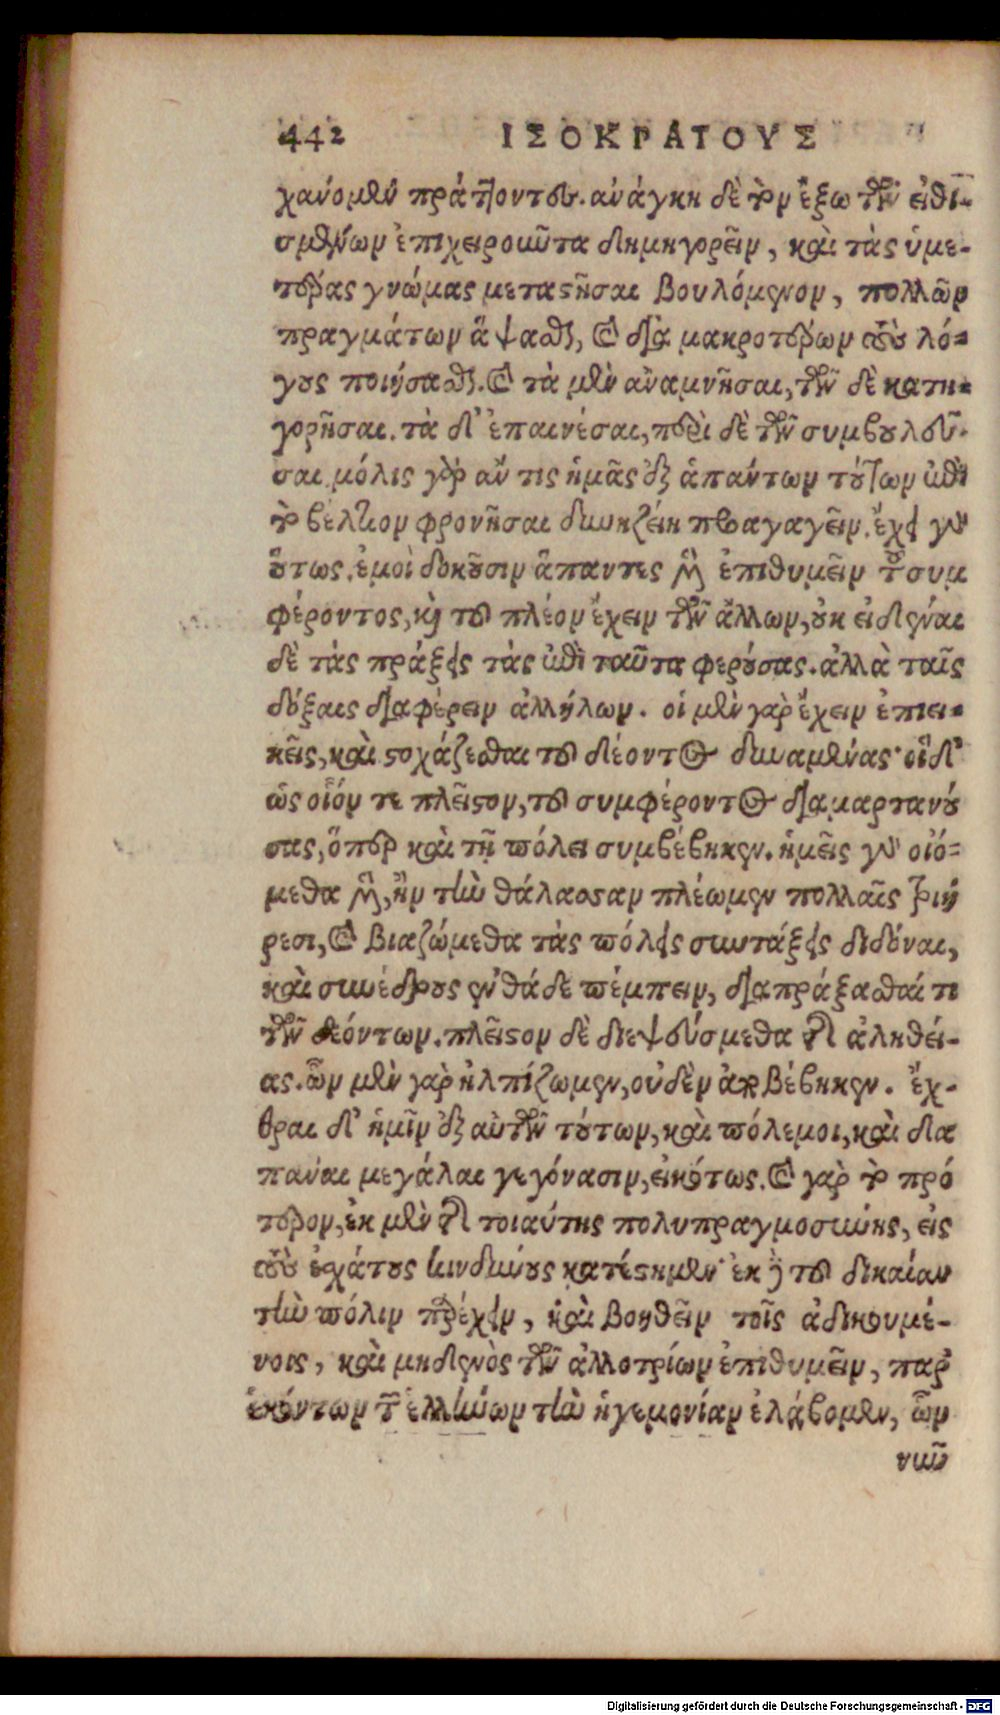 442 ΙΣΟΚΡΑΤΟΥΣ
χανομεν πράττοντες. ἀνάγκη δὲ τὸν ἔξω τῶν εἰθι-
σμένων ἐπιχειροῦντα δημηγορεῖν, καὶ τὰς ὑμε-
τέρας γνώμας μεταστῆσαι βουλόμενον, πολλῶν
πραγμάτων ἅψασθαι, καὶ διὰ μακροτέρων τοὺς λό-
γους ποιήσασθαι. καὶ τὰ μὲν ἀναμνῆσαι, τῶν δὲ κατη-
γορῆσαι. τὰ δ' ἐπαινέσαι, περὶ δὲ τῶν συμβουλεῦ-
σαι. μόλις γὰρ ἄν τις ἡμᾶς ἐξ ἁπάντων τούτων ἐπὶ
τὸ βέλτιον φρονῆσαι δυνηθείη προαγαγεῖν. ἔχει γὰρ
οὕτως. ἐμοὶ δοκοῦσιν ἅπαντες μὲν ἐπιθυμεῖν τοῦ συμ
φέροντος, καὶ τοῦ πλέον ἔχειν τῶν ἄλλων, οὐκ εἰδέναι
δὲ τὰς πράξεις τὰς ἐπὶ ταῦτα φερούσας. ἀλλὰ ταῖς
δόξαις διαφέρειν ἀλλήλων. οἱ μὲν γὰρ ἔχειν ἐπιει-
κεῖς, καὶ στοχάζεσθαι τοῦ δέοντος δυναμένας· οἱ δ'
ὡς οἷόν τε πλεῖστον, τοῦ συμφέροντος διαμαρτανού
σας, ὅπερ καὶ τῇ πόλει συμβέβηκεν. ἡμεῖς γὰρ οἰό-
μεθα μὲν, ἢν τὴν θάλασσαν πλέωμεν πολλαῖς τριή
ρεσι, καὶ βιαζώμεθα τὰς πόλεις συντάξεις διδόναι,
καὶ συνέδρους ἐνθάδε πέμπειν, διαπράξασθαί τι
τῶν δεόντων. πλεῖστον δὲ διεψεύσμεθα τῆς ἀληθεί-
ας. ὧν μὲν γὰρ ἠλπίζωμεν, οὐδὲν ἀποβέβηκεν. ἔχ-
θραι δ' ἡμῖν ἐξ αὐτῶν τούτων, καὶ πόλεμοι, καὶ δα
πάναι μεγάλαι γεγόνασιν, εἰκότως. καὶ γὰρ τὸ πρό
τερον, ἐκ μὲν τῆς τοιαύτης πολυπραγμοσύνης, εἰς
τοὺς ἐσχάτους κινδύνους κατέστημεν· ἐκ δὲ τοῦ δικαίαν
τὴν πόλιν παρέχειν, καὶ βοηθεῖν τοῖς ἀδικουμέ-
νοις, καὶ μηδενὸς τῶν ἀλλοτρίων ἐπιθυμεῖν, παρ'
ἑκόντων τῶν ἑλλήνων τὴν ἡγεμονίαν ἐλάβομεν, ὧν
νῦν
Digitalisierung gefördert durch die Deutsche Forschungsgemeinschaft - DFG